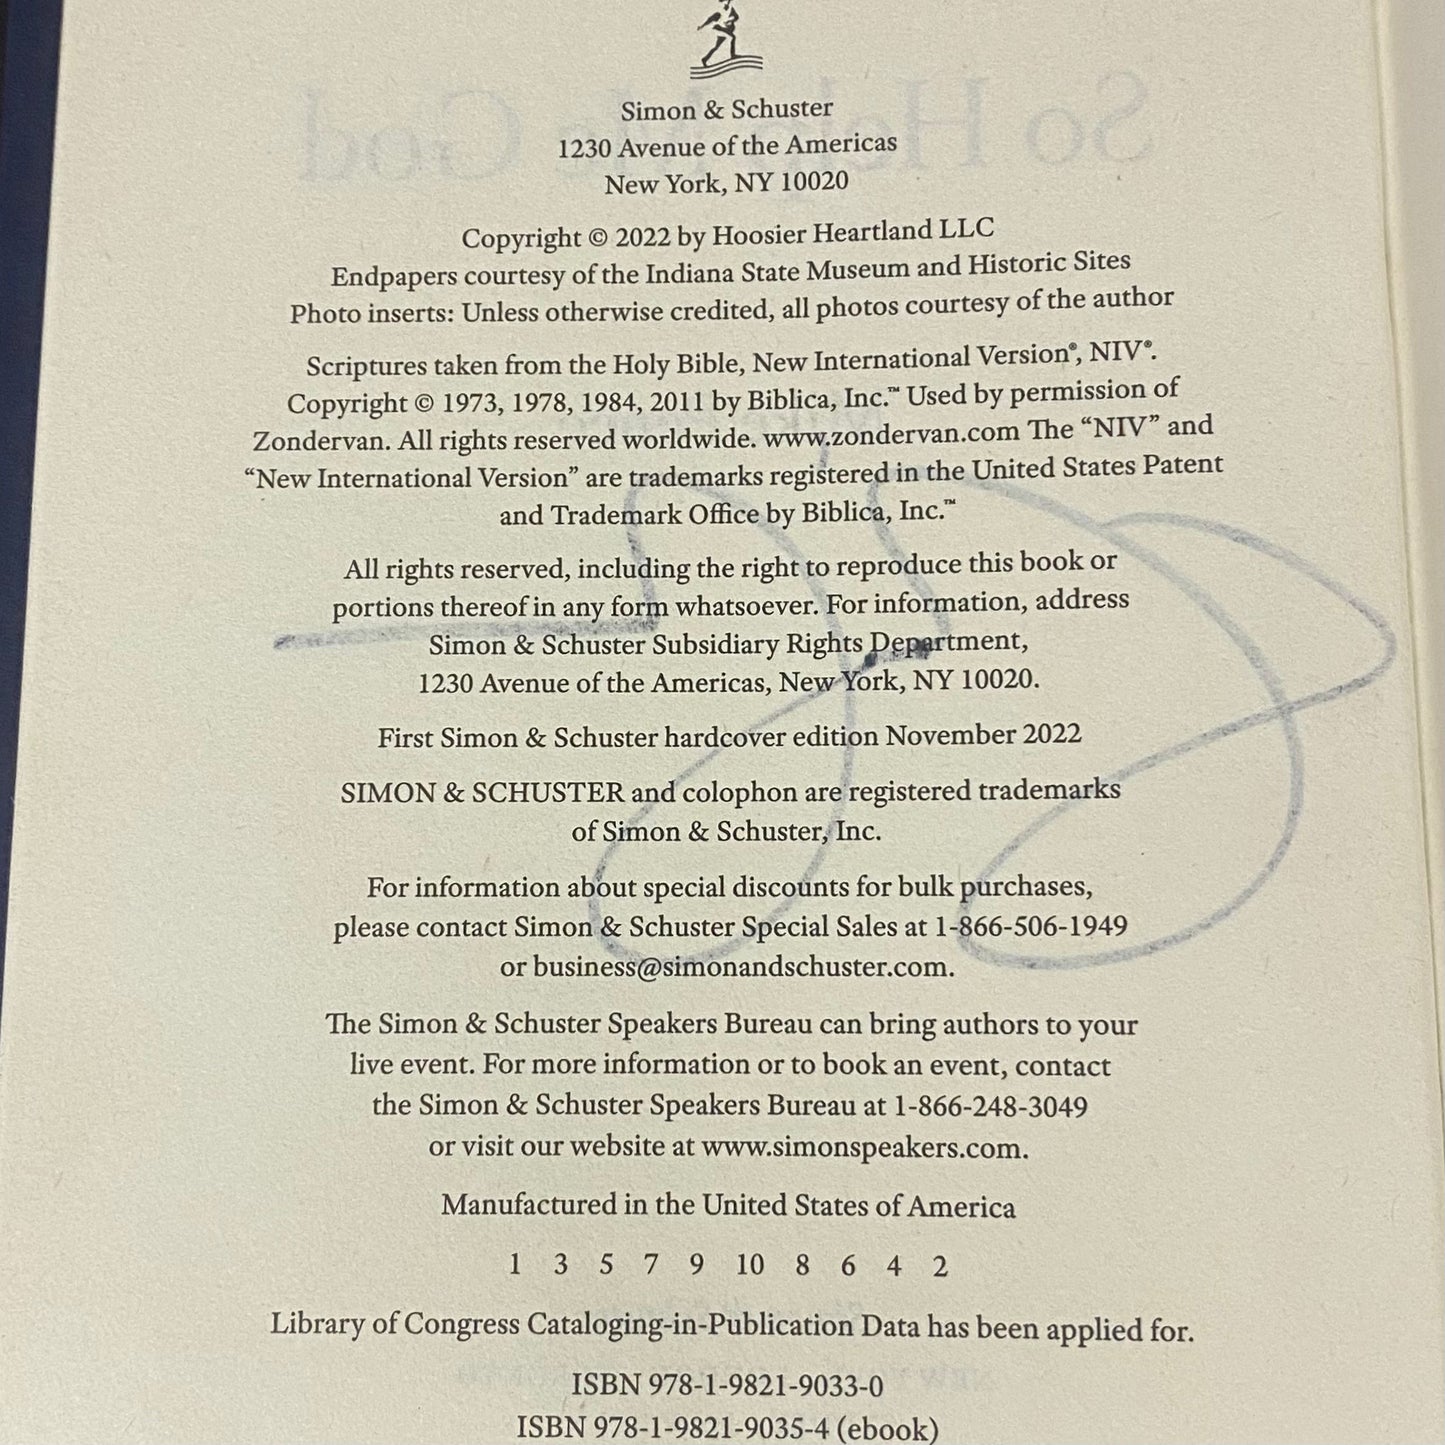 Simon & Schuster
1230 Avenue of the Americas
New York, NY 10020
Copyright © 2022 by Hoosier Heartland LLC
Endpapers courtesy of the Indiana State Museum and Historic Sites
Photo inserts: Unless otherwise credited, all photos courtesy of the author
Scriptures taken from the Holy Bible, New International Version®, NIV®.
Copyright © 1973, 1978, 1984, 2011 by Biblica, Inc.™ Used by permission of
Zondervan. All rights reserved worldwide. www.zondervan.com The “NIV” and
“New International Version” are trademarks registered in the United States Patent
and Trademark Office by Biblica, Inc.™
All rights reserved, including the right to reproduce this book or
portions thereof in any form whatsoever. For information, address
Simon & Schuster Subsidiary Rights Department,
1230 Avenue of the Americas, New York, NY 10020.
First Simon & Schuster hardcover edition November 2022
SIMON & SCHUSTER and colophon are registered trademarks
of Simon & Schuster, Inc.
For information about special discounts for bulk purchases,
please contact Simon & Schuster Special Sales at 1-866-506-1949
or business@simonandschuster.com.
The Simon & Schuster Speakers Bureau can bring authors to your
live event. For more information or to book an event, contact
the Simon & Schuster Speakers Bureau at 1-866-248-3049
or visit our website at www.simonspeakers.com.
Manufactured in the United States of America
1 3 5 7 9 10 8 6 4 2
Library of Congress Cataloging-in-Publication Data has been applied for.
ISBN 978-1-9821-9033-0
ISBN 978-1-9821-9035-4 (ebook)